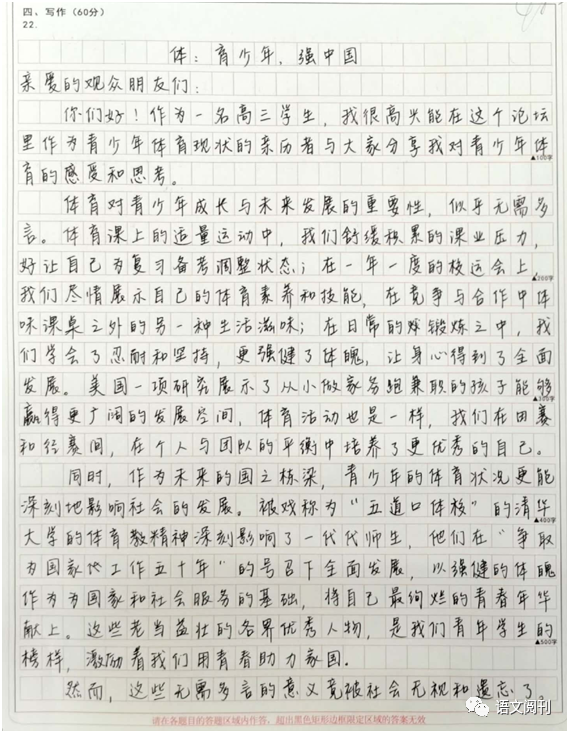 四、写作（60分）
22.
体：育少年，强中国
亲爱的观众朋友们：
你们好！作为一名高三学生，我很高兴能在这个论坛
里作为青少年体育现状的亲历者与大家分享我对青少年体
▲100字
育的感受和思考。
体育对青少年成长与未来发展的重要性，似乎无需多
言。体育课上的适量运动中，我们舒缓积累的课业压力，
好让自己为复习备考调整状态；在一年一度的校运会上，
▲200字
我们尽情展示自己的体育素养和技能，在竞争与合作中体
味课桌之外的另一种生活滋味；在日常的锻炼之中，我
们学会了忍耐和坚持，更强健了体魄，让身心得到了全面
发展。美国一项研究展示了从小做家务跑兼职的孩子能够
▲300字
赢得更广阔的发展空间，体育活动也是一样，我们在田赛
和径赛间，在个人与团队的平衡中培养了更优秀的自己。
同时，作为未来的国之栋梁，青少年的体育状况更能
深刻地影响社会的发展。被戏称为“五道口体校”的清华
▲400字
大学的体育教精神深刻影响了一代代师生，他们在“争取
为国家地工作五十年”的号召下全面发展，以强健的体魄
作为为国家和社会服务的基础，将自己最绚烂的青春年华
献上。这些老当益壮的各界优秀人物，是我们青年学生的
▲500字
榜样，激励着我们用青春助力家国。
然而，这些无需多言的意义竟被社会无视和遗忘了。
请在各题目的答题区域内作答，超出黑色矩形边框限定区域的答案无效
语文阅刊